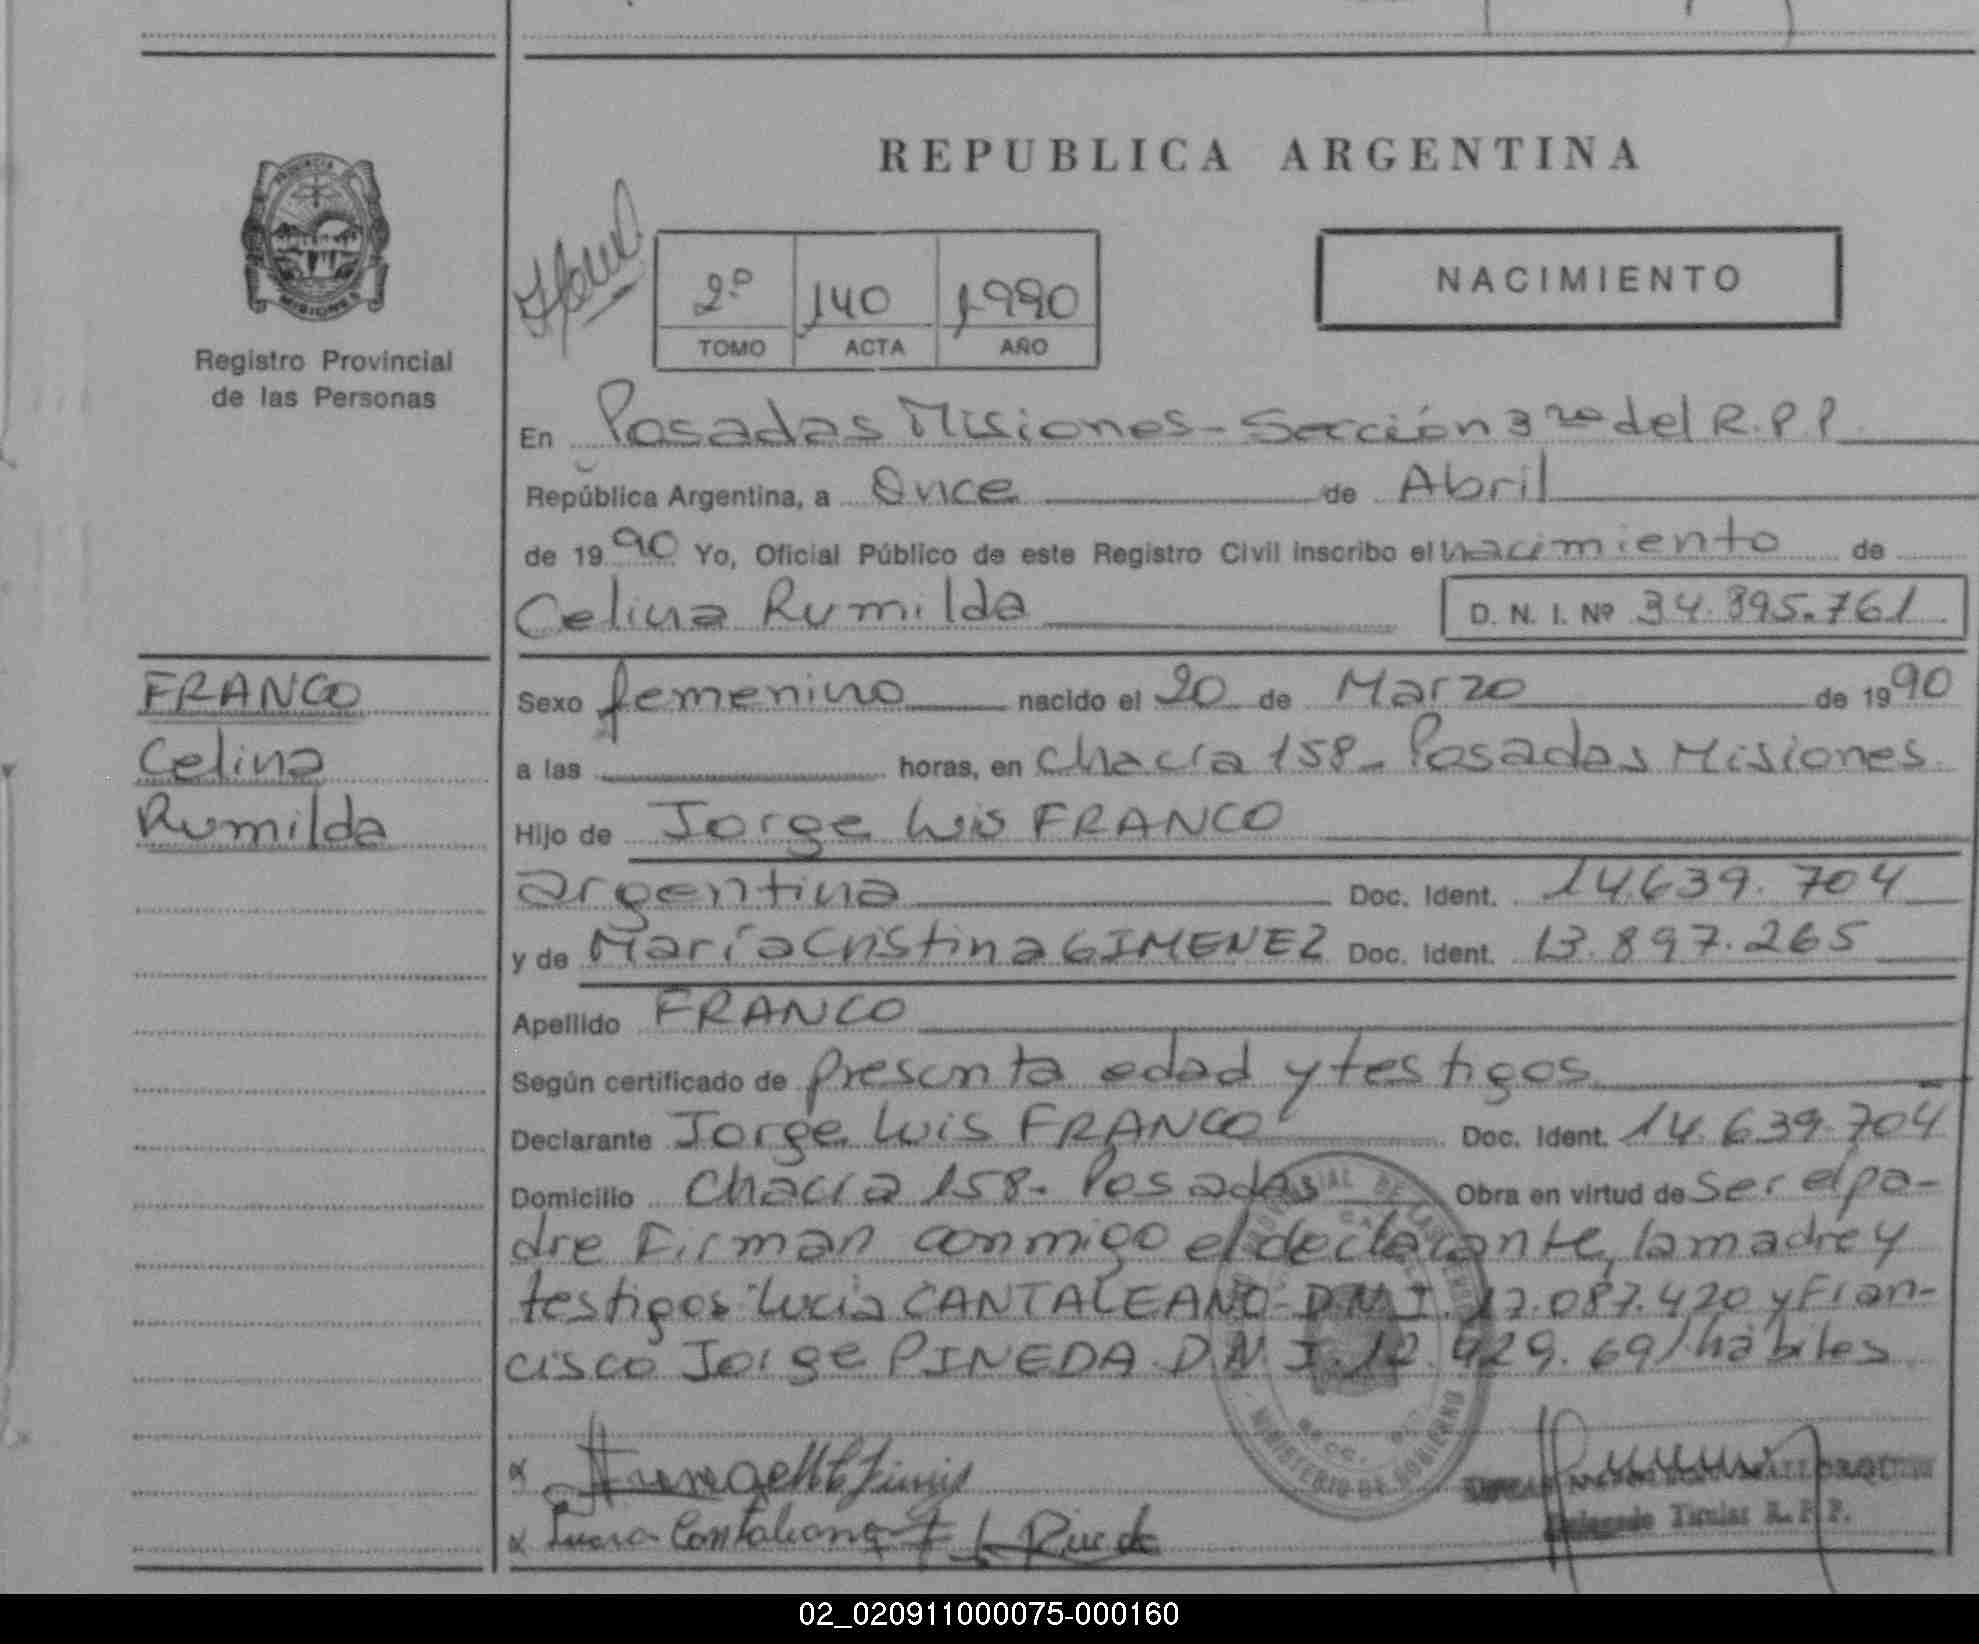 REPUBLICA ARGENTINA
PROVINCIA
MISIONES
Registro Provincial
de las Personas
2º 140 1990
TOMO ACTA AÑO
NACIMIENTO
En Posadas Misiones - Sección 3ra del R.P.P.
República Argentina, a Once de Abril
de 1990 Yo, Oficial Público de este Registro Civil inscribo el nacimiento de
Celina Rumilda D. N. I. Nº 34.895.761
FRANCO
Celina
Rumilda
Sexo femenino nacido el 20 de Marzo de 1990
a las horas, en Chacra 158 - Posadas Misiones
Hijo de Jorge Luis FRANCO
argentina Doc. Ident. 14.639.704
y de María Cristina GIMENEZ Doc. Ident. 13.897.265
Apellido FRANCO
Según certificado de presenta edad y testigos
Declarante Jorge Luis FRANCO Doc. Ident. 14.639.704
Domicilio Chacra 158 - Posadas Obra en virtud de Ser el pa-
dre Firman conmigo el declarante, la madre y
testigos Lucia CANTALEANO - D.N.I. 17.087.420 y Fran-
cisco Jorge PINEDA D.N.I. 12.929.691 hábiles
MINISTERIO DE GOBIERNO
Lucia Cantaleano
Delegado Titular R. P. P.
02_020911000075-000160